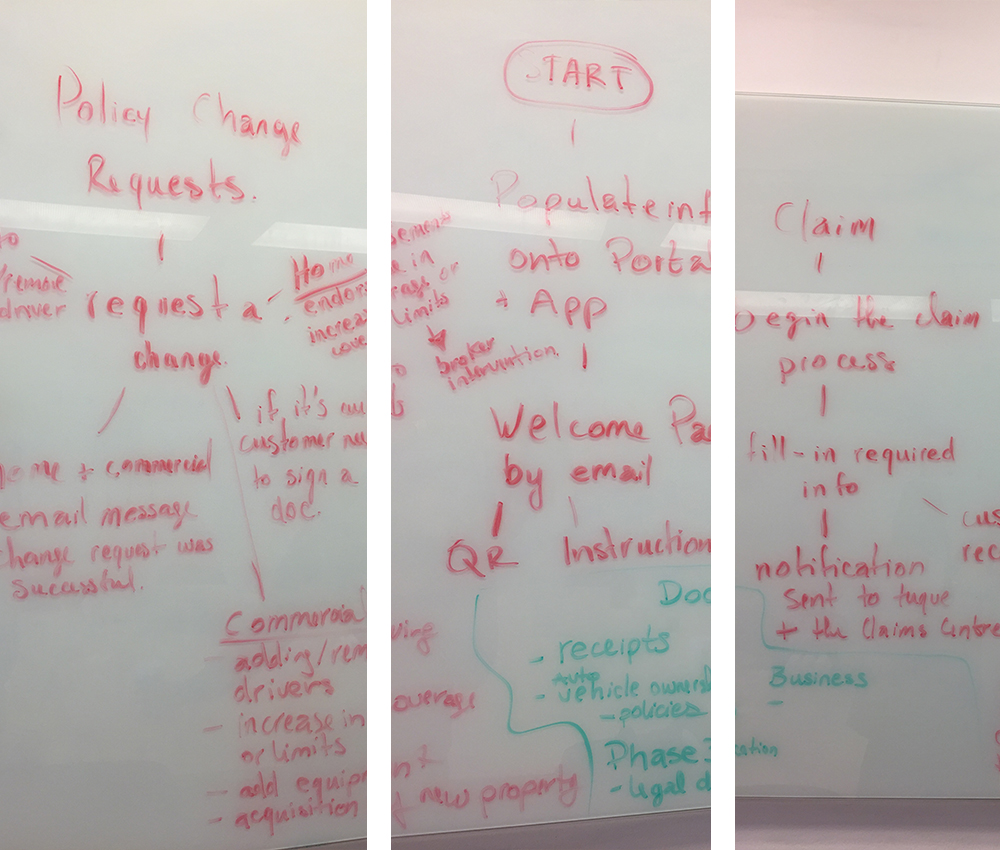 Policy Change
Requests.
/remove
driver
request a
change.
Home
endors
increa
cove
home + commercial
email message
change request was
Sucessful.
if it's au
customer ne
to sign a
doc.
Commercial
- adding/rem
drivers
- increase in
or limits
- add equip
- acquisition
START
Populate inf
onto Porta
+ App
sement
e in
rage or
limits
broker
intervention.
Welcome Pa
by email
QR
Instruction
Doc
- receipts
Auto
- vehicle owners
- policies
Phase 3
- legal d
ving
overage
new property
Claim
begin the claim
process
fill-in required
info
cus
rec
notification
sent to tuque
+ the Claims Centre
Business
-
cation